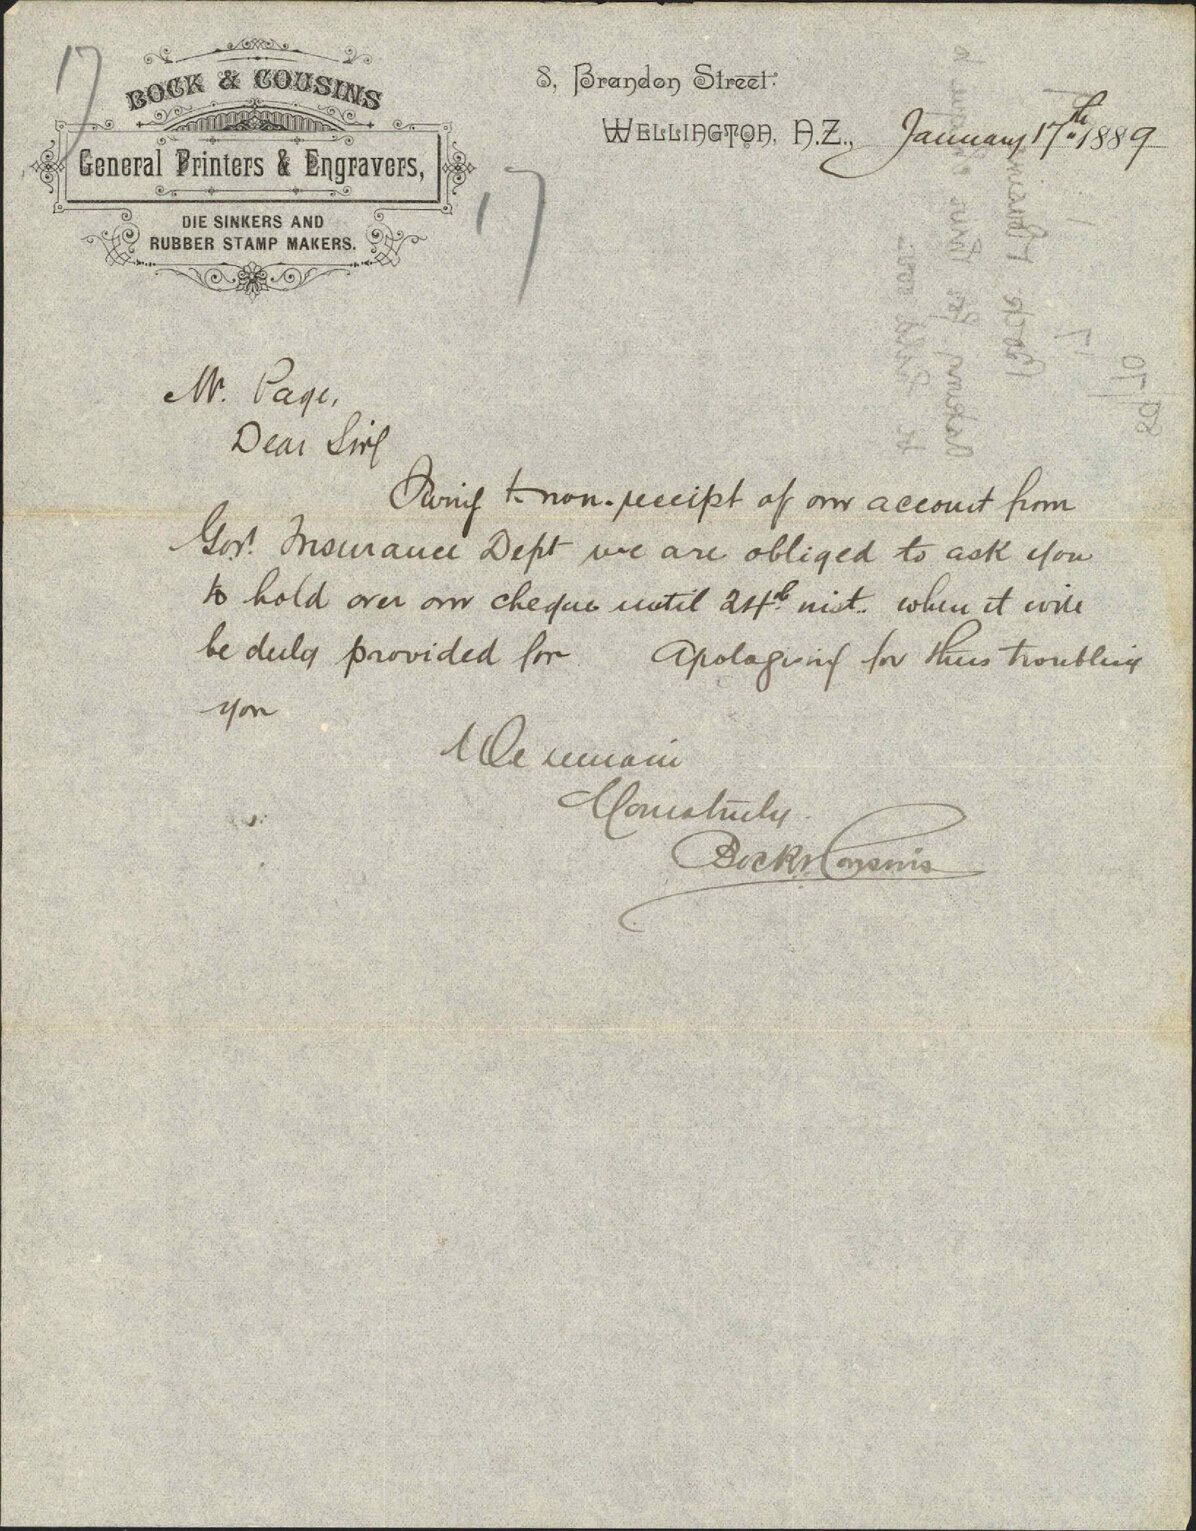 17
BOCK & COUSINS
General Printers & Engravers,
DIE SINKERS AND
RUBBER STAMP MAKERS.
8, Brandon Street.
WELLINGTON, N.Z., January 17th 1889
17
Mr. Page,
Dear Sir
Owing to non-receipt of our account from
Govt. Insurance Dept we are obliged to ask you
to hold over our cheque until 24th inst. when it will
be duly provided for Apologising for thus troubling
you
We remain
Yours truly
Bock & Cousins